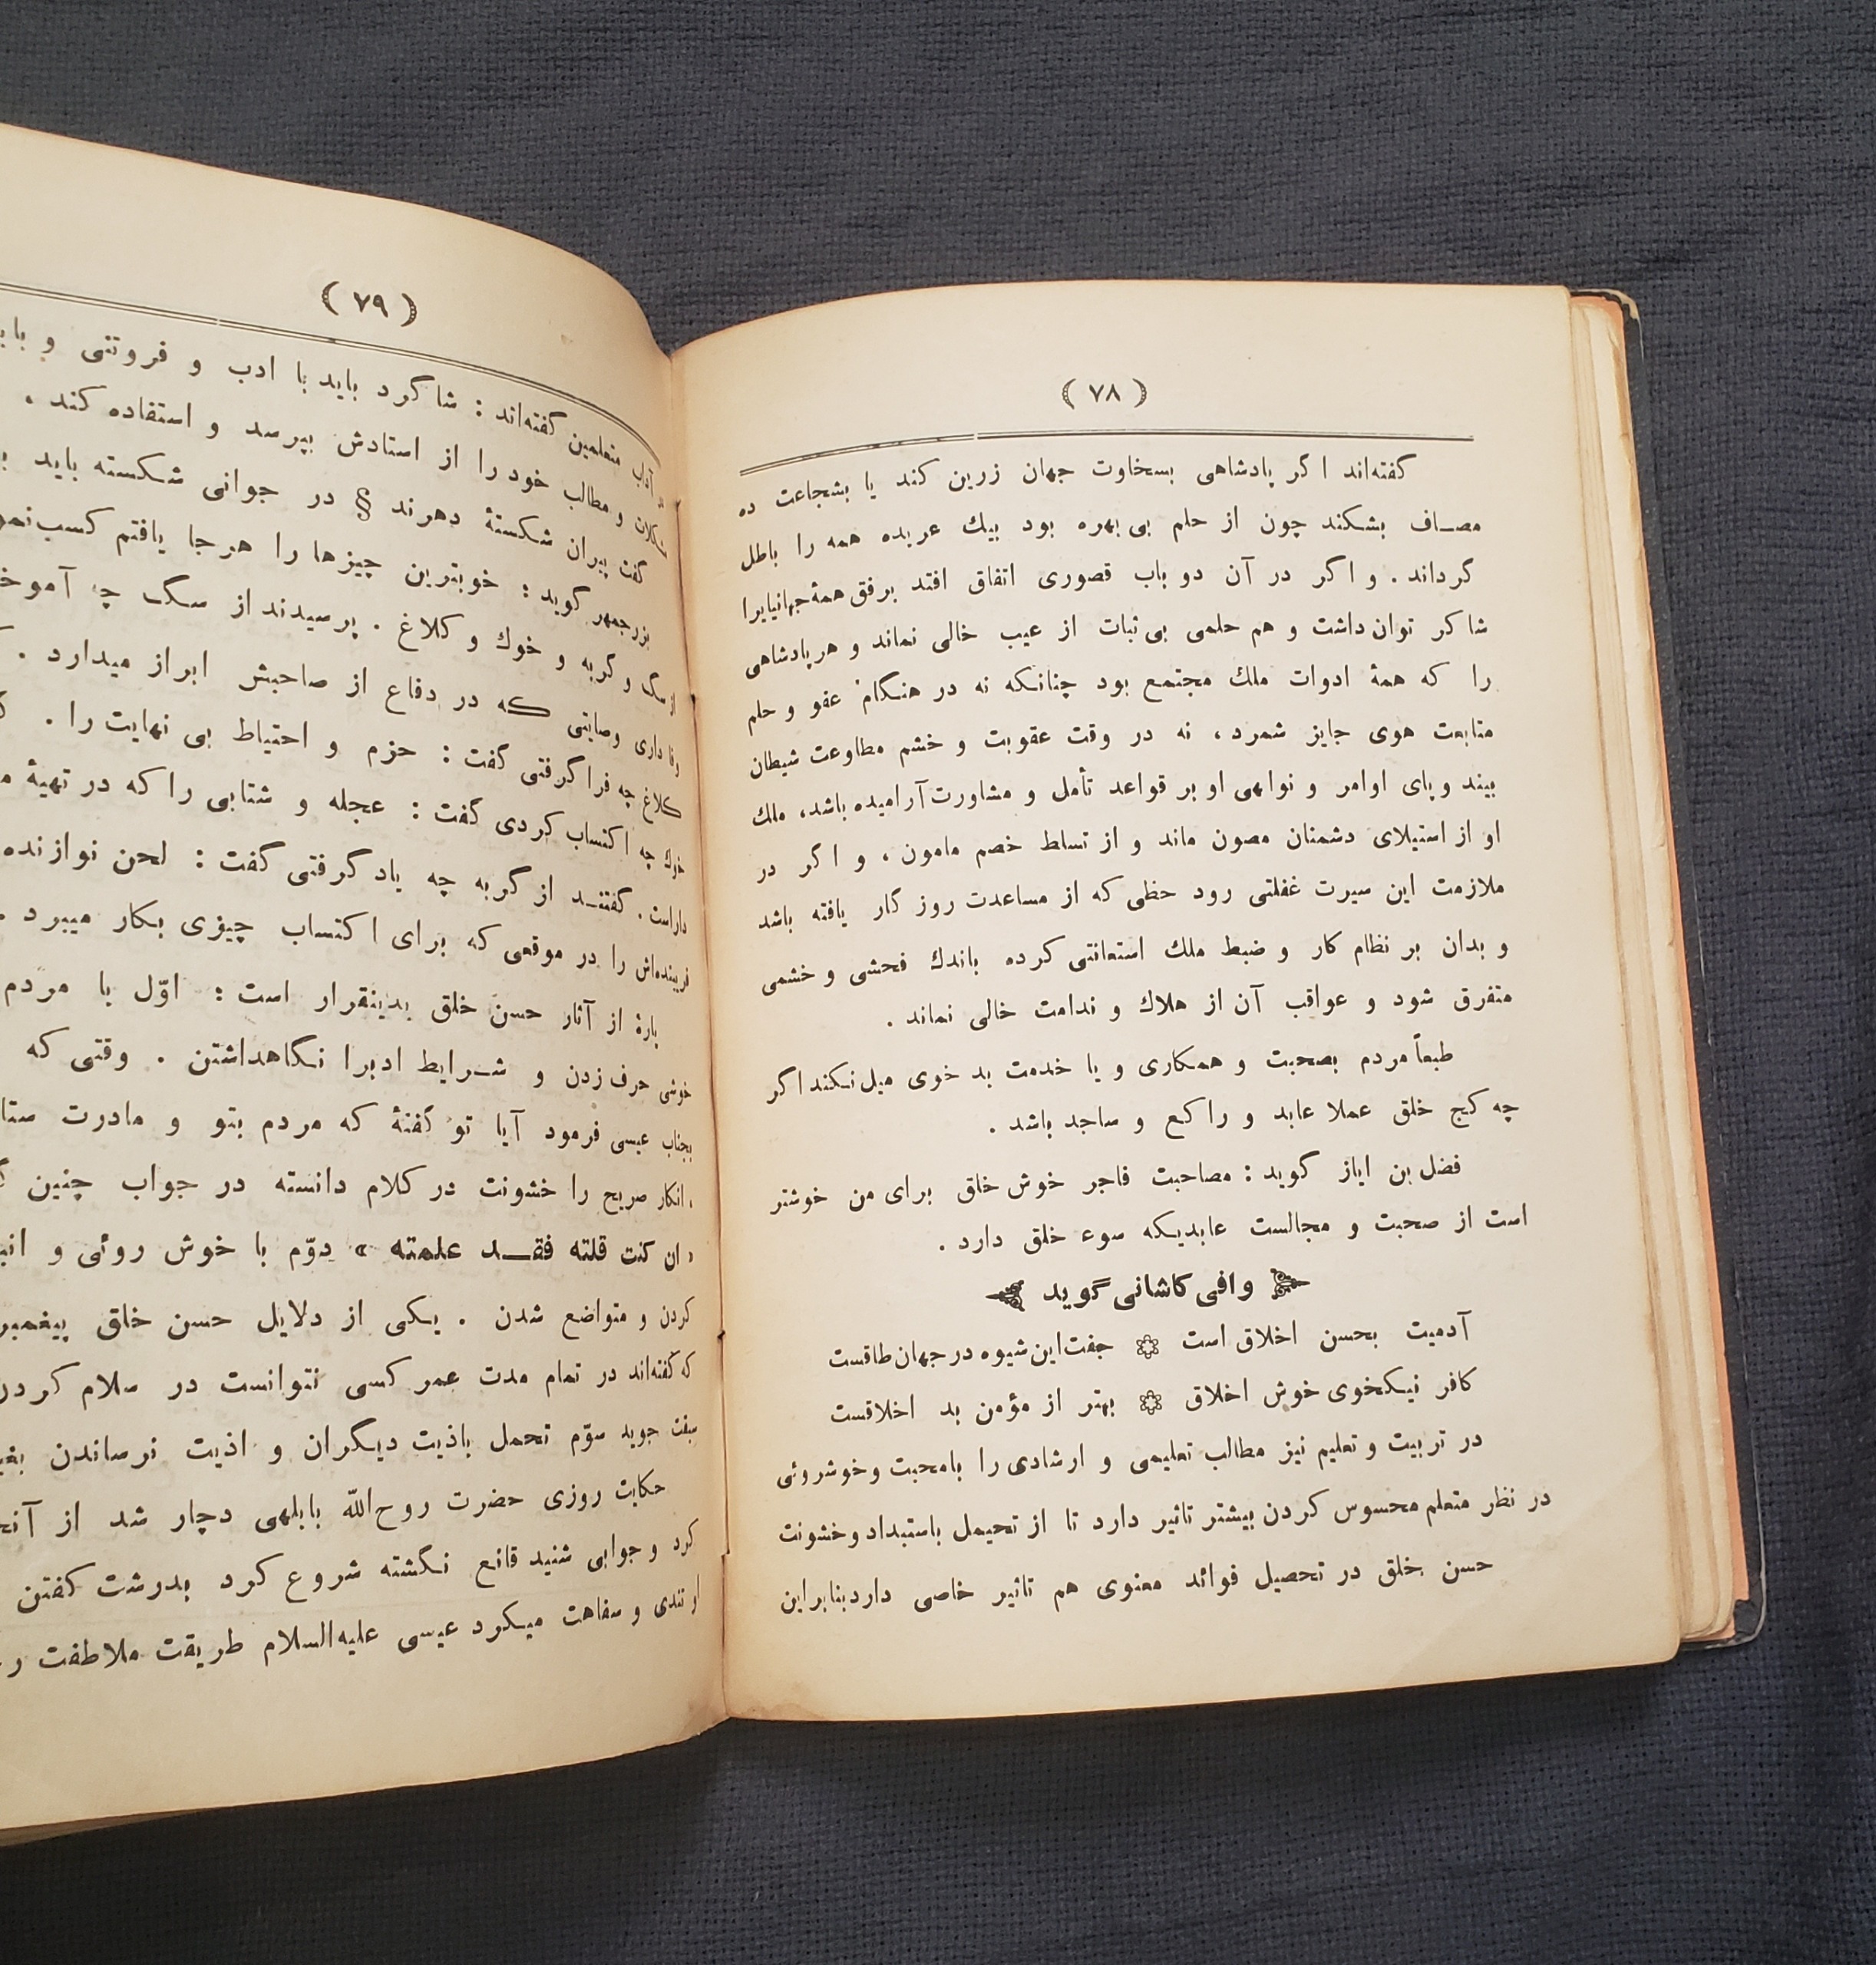 ( ٧٨ )
گفته‌اند اگر پادشاهی بسخاوت جهان زرین کند یا بشجاعت ده
مصاف بشکند چون از حلم بی بهره بود بیك عربده همه را باطل
گرداند . و اگر در آن دو باب قصوری اتفاق افتد برفق همهٔ جهانیانرا
شاکر توان داشت و هم حلمی بی ثبات از عیب خالی نماند و هر پادشاهی
را که همهٔ ادوات ملك مجتمع بود چنانکه نه در هنگام عفو و حلم
متابعت هوی جایز شمرد ، نه در وقت عقوبت و خشم مطاوعت شیطان
بیند و پای اوامر و نواهی او بر قواعد تأمل و مشاورت آرامیده باشد، ملك
او از استیلای دشمنان مصون ماند و از تسلط خصم مامون ، و اگر در
ملازمت این سیرت غفلتی رود حظی که از مساعدت روز گار یافته باشد
و بدان بر نظام کار و ضبط ملك استعانتی کرده باندك فحشی و خشمی
متفرق شود و عواقب آن از هلاك و ندامت خالی نماند .
طبعاً مردم بصحبت و همکاری و یا خدمت بد خوی میل نکند اگر
چه کج خلق عملا عابد و راکع و ساجد باشد .
فضل بن ایاز گوید : مصاحبت فاجر خوش خلق برای من خوشتر
است از صحبت و مجالست عابدیکه سوء خلق دارد .
وافی کاشانی گوید
آدمیت بحسن اخلاق است جفت این شیوه در جهان طاقست
کافر نیکخوی خوش اخلاق بهتر از مؤمن بد اخلاقست
در تربیت و تعلیم نیز مطالب تعلیمی و ارشادی را بامحبت و خوشروئی
در نظر متعلم محسوس کردن بیشتر تاثیر دارد تا از تحیمل باستبداد و خشونت
حسن خلق در تحصیل فوائد معنوی هم تاثیر خاصی دارد بنابراین
( ٧٩ )
آداب متعلمین گفته‌اند : شاگرد باید با ادب و فروتنی و
مشکلات و مطالب خود را از استادش بپرسد و استفاده کند .
گفت پیران شکستهٔ دهرند § در جوانی شکسته باید
بزرجمهر گوید : خوبترین چیزها را هرجا یافتم کسب
از سگ و گربه و خوك و کلاغ . پرسیدند از سگ چه
وفاداری وصایتی که در دفاع از صاحبش ابراز میدارد .
کلاغ چه فرا گرفتی گفت : حزم و احتیاط بی نهایت را .
خوك چه اکتساب کردی گفت : عجله و شتابی را که در تهیهٔ
داراست . گفتند از گربه چه یاد گرفتی گفت : لحن نوازنده
فریبنده‌اش را در موقعی که برای اکتساب چیزی بکار میبرد .
پارهٔ از آثار حسن خلق بدینقرار است : اوّل با مردم
خوشی حرف زدن و شرایط ادبرا نگاهداشتن . وقتی که
بجناب عیسی فرمود آیا تو گفتهٔ که مردم بتو و مادرت
انکار صریح را خشونت در کلام دانسته در جواب چنین
« ان کنت قلته فقد علمته » دوّم با خوش روئی و
کردن و متواضع شدن . یکی از دلایل حسن خلق
که گفته‌اند در تمام مدت عمر کسی نتوانست در سلام
سبقت جوید سوّم تحمل باذیت دیگران و اذیت نرساندن
حکایت روزی حضرت روح‌الله بابلهی دچار شد از
کرد و جوابی شنید قانع نگشته شروع کرد بدرشت گفتن
او تندی و سفاهت میکرد عیسی علیه‌السلام طریقت ملاطفت